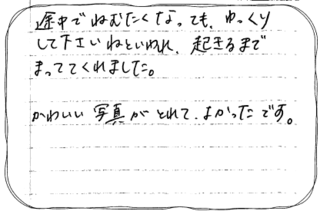 途中でねむたくなっても、ゆっくり
して下さいねといわれ、起きるまで
まっててくれました。
かわいい写真がとれて、よかったです。